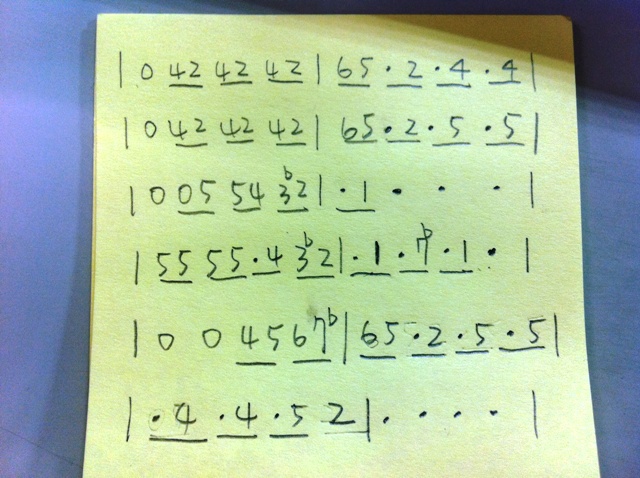 | 0 42 42 42 | 65 · 2 · 4 · 4 |
| 0 42 42 42 | 65 · 2 · 5 · 5 |
| 0 05 54 ♭32 | · 1 · · · |
| 55 55 · 4 ♭32 | · 1 · ♭7 · 1 · |
| 0 0 45 67♭ | 65 · 2 · 5 · 5 |
| · 4 · 4 · 5 2 | · · · · |